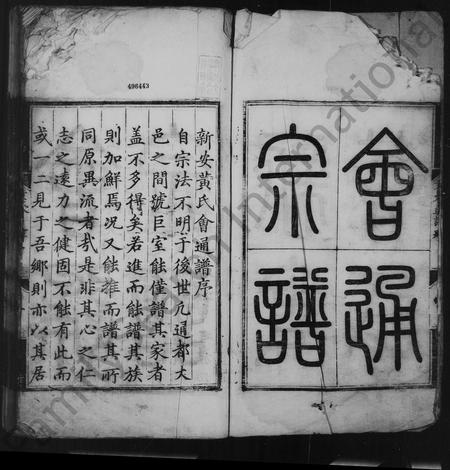 會通
宗譜
496443
新安黃氏會通譜序
自宗法不明于後世凢通都大
邑之間號巨室能僅譜其家者
盖不多得矣若進而能譜其族
則加鮮焉况又能推而譜其所
同原異流者哉是非其心之仁
志之遠力之健固不能有此而
或一二見于吾鄉則亦以其居